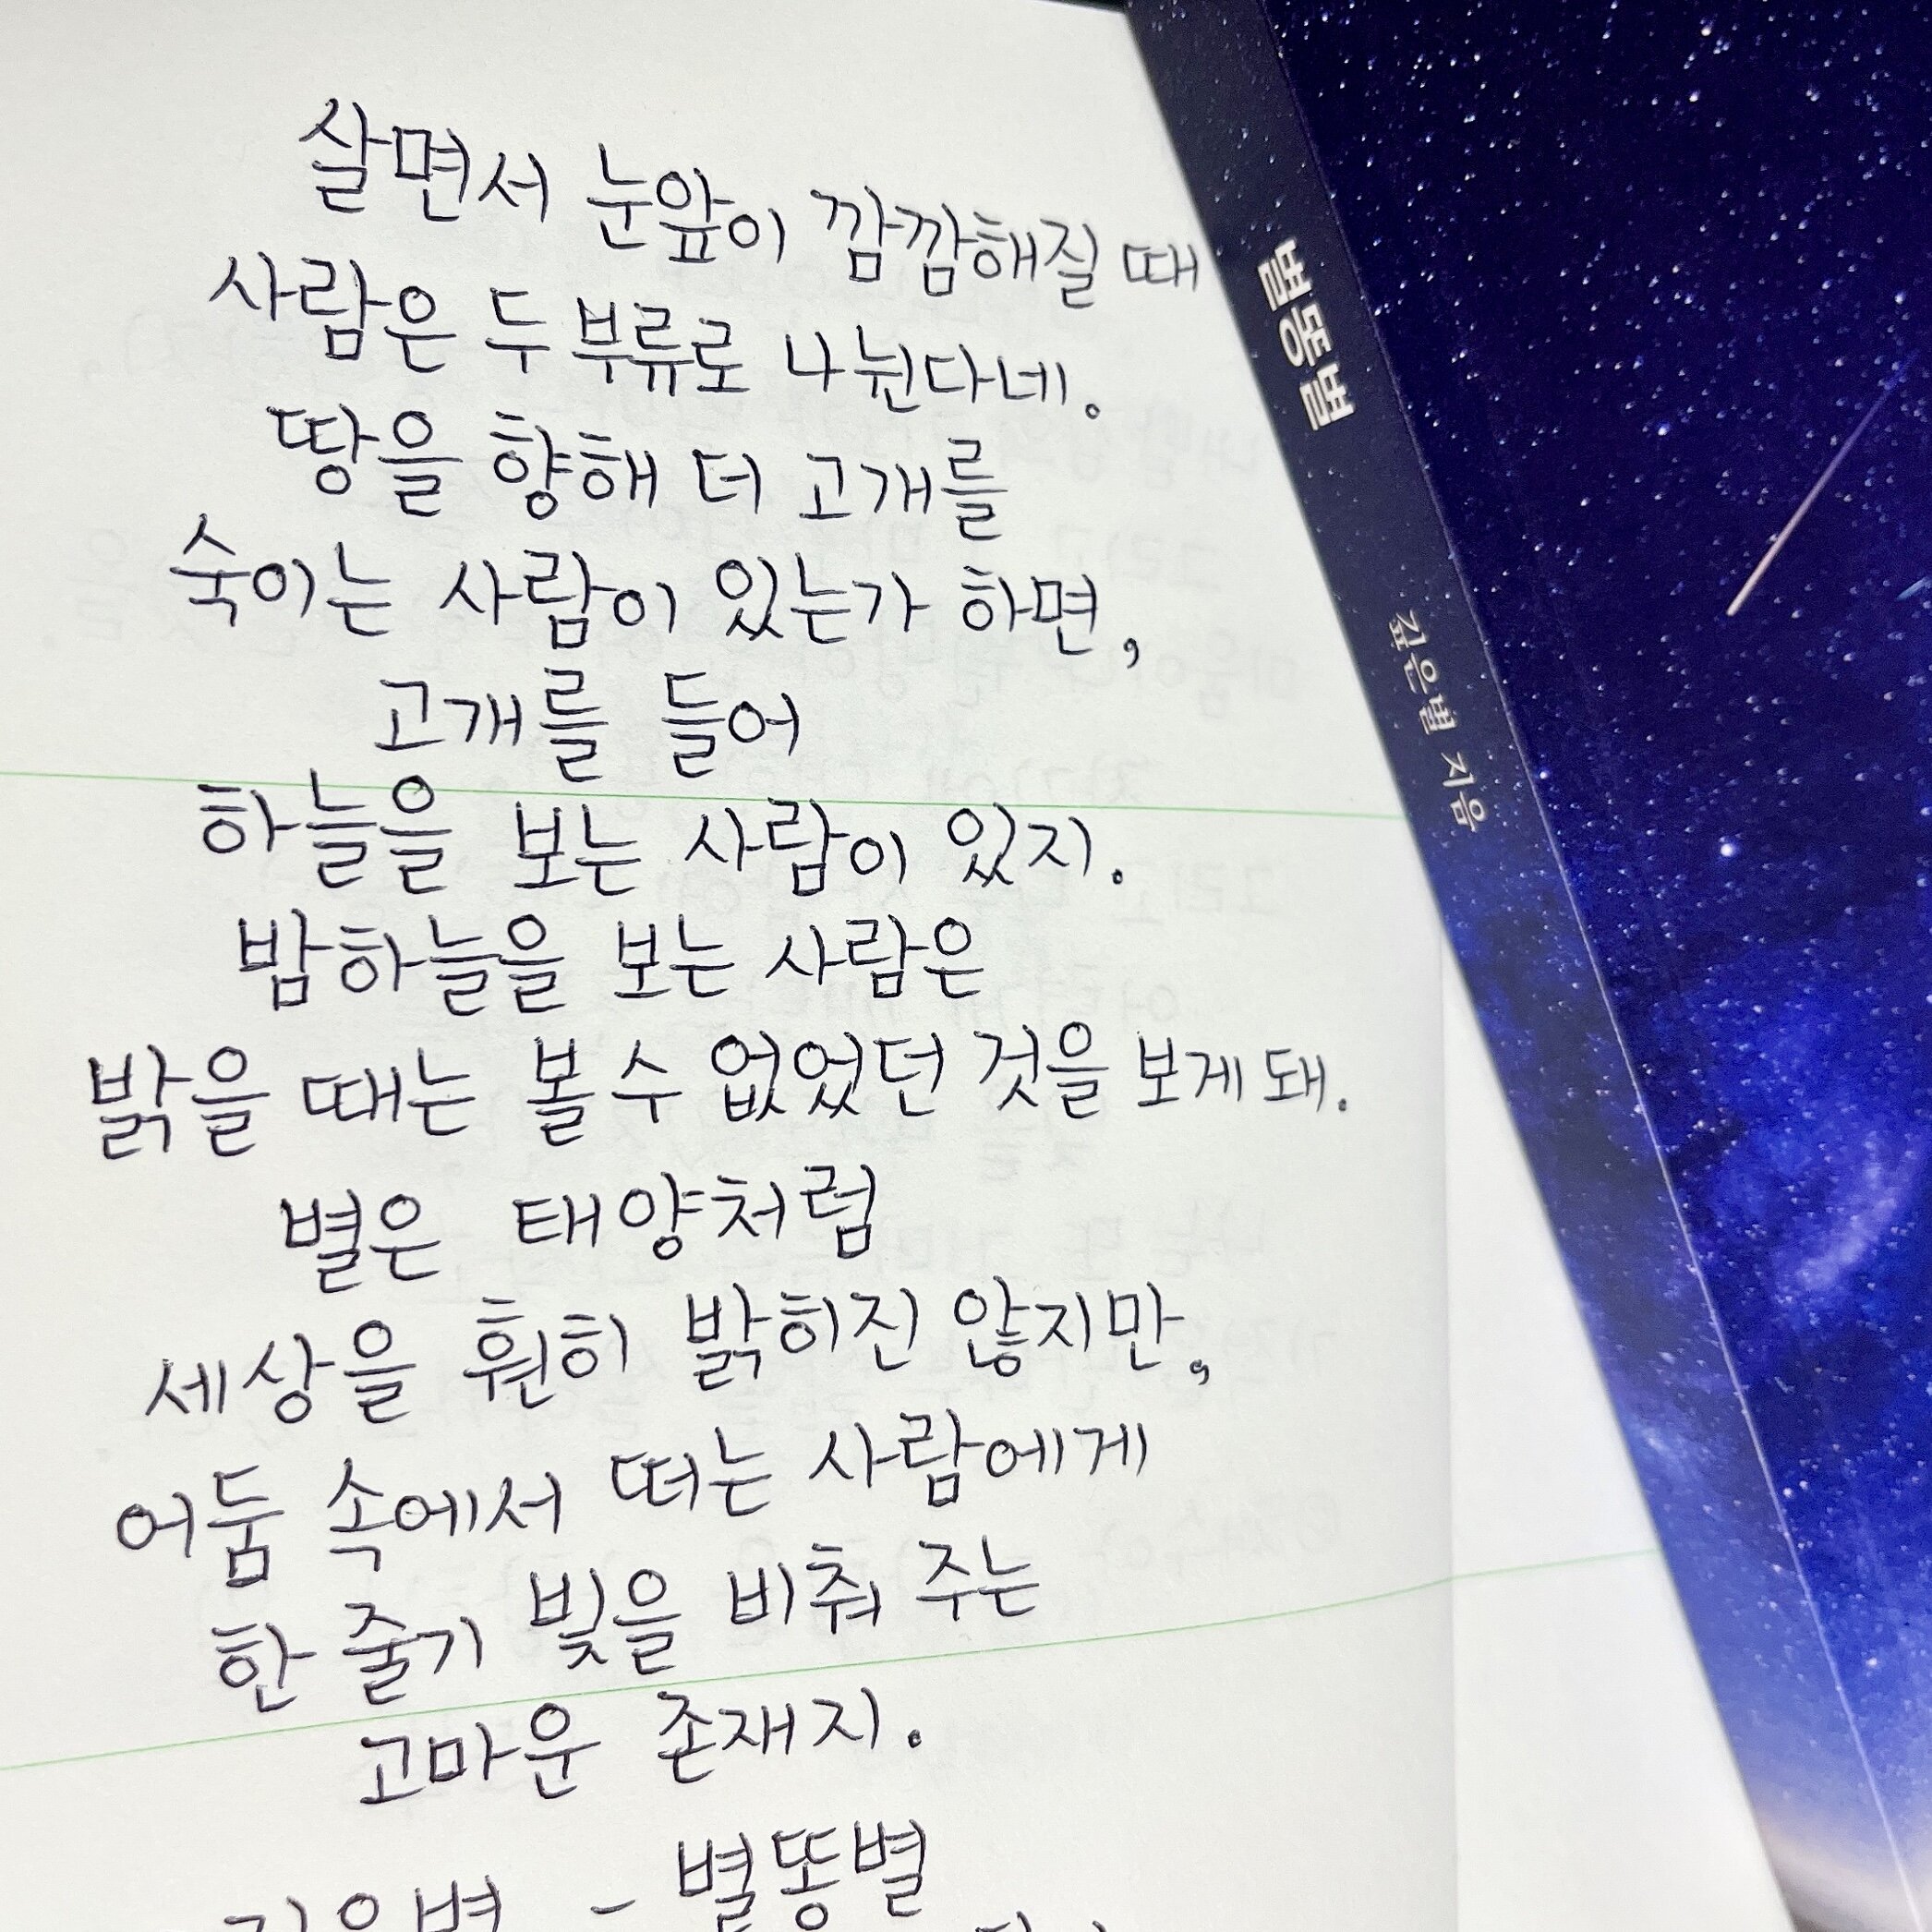 살면서 눈앞이 깜깜해질 때
사람은 두 부류로 나뉜다네.
땅을 향해 더 고개를
숙이는 사람이 있는가 하면,
고개를 들어
하늘을 보는 사람이 있지.
밤하늘을 보는 사람은
밝을 때는 볼 수 없었던 것을 보게 돼.
별은 태양처럼
세상을 훤히 밝히진 않지만,
어둠 속에서 떠는 사람에게
한 줄기 빛을 비춰 주는
고마운 존재지.
- 별똥별
별똥별
깊은별 지음